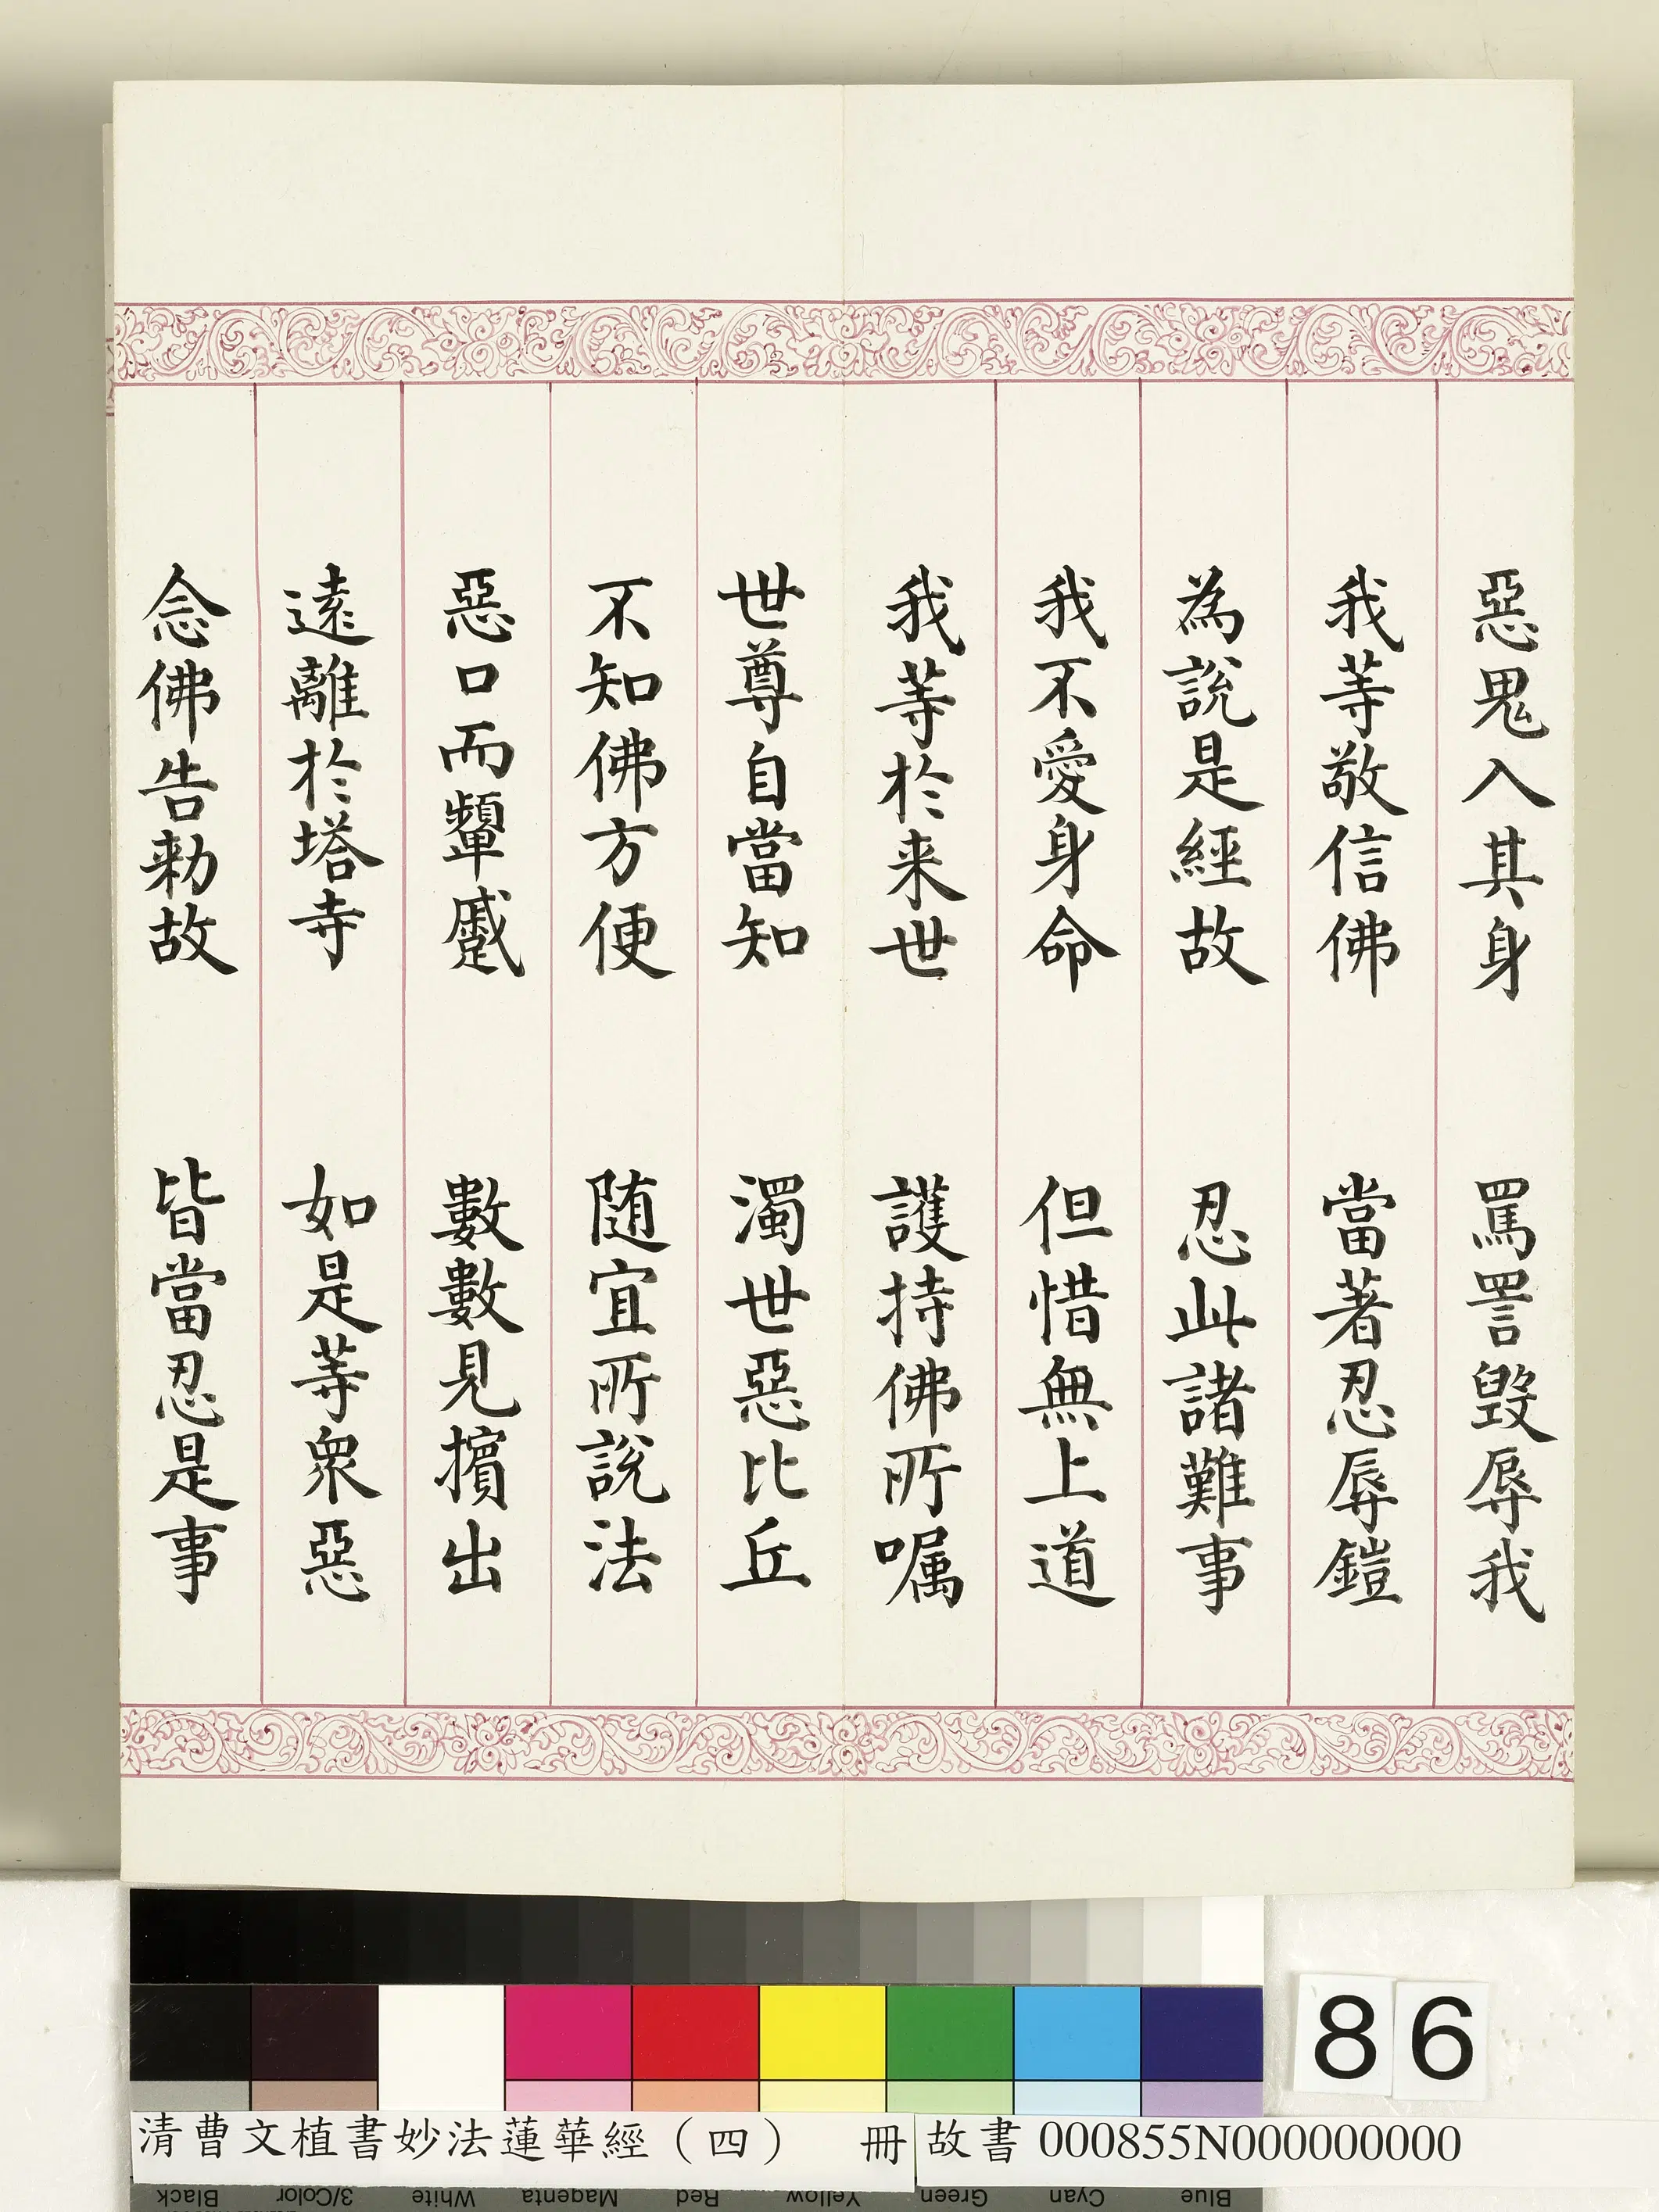 惡鬼入其身　罵詈毀辱我
我等敬信佛　當著忍辱鎧
為說是經故　忍此諸難事
我不愛身命　但惜無上道
我等於来世　護持佛所嘱
世尊自當知　濁世惡比丘
不知佛方便　随宜所說法
惡口而顰蹙　數數見擯出
遠離於塔寺　如是等眾惡
念佛告勑故　皆當忍是事
86
清曹文植書妙法蓮華經（四）　冊
故書 000855N000000000
Black 3/Color White Magenta Red Yellow Green Cyan Blue